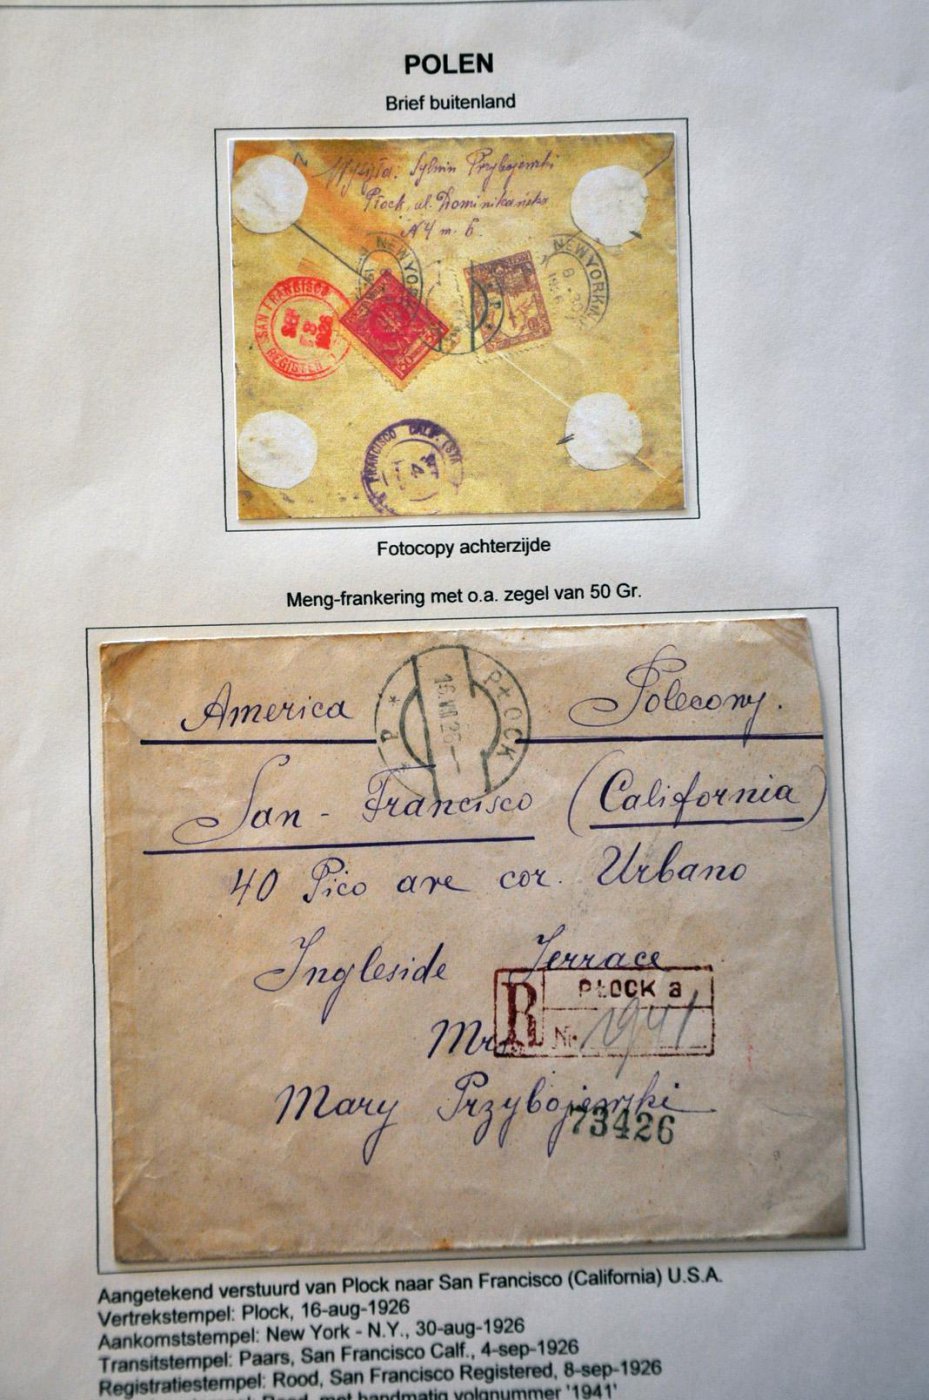 POLEN
Brief buitenland
Sylwin Przybojewski
Płock, ul. Dominikańska
N 4 m. 6.
NEW YORK
NEW YORK N.Y.
SAN FRANCISCO
REGISTERED
50
FRANCISCO CALIF.
Fotocopy achterzijde
Meng-frankering met o.a. zegel van 50 Gr.
PŁOCK
16.VIII 26
P
America Polecony.
San-Francisco (California)
40 Pico ave cor. Urbano
Ingleside Terrace
R PŁOCK a
Nr. 1941
Mrs
Mary Przybojewski
73426
Aangetekend verstuurd van Plock naar San Francisco (California) U.S.A.
Vertrekstempel: Plock, 16-aug-1926
Aankomststempel: New York - N.Y., 30-aug-1926
Transitstempel: Paars, San Francisco Calf., 4-sep-1926
Registratiestempel: Rood, San Francisco Registered, 8-sep-1926
Rood, met handmatig volgnummer '1941'